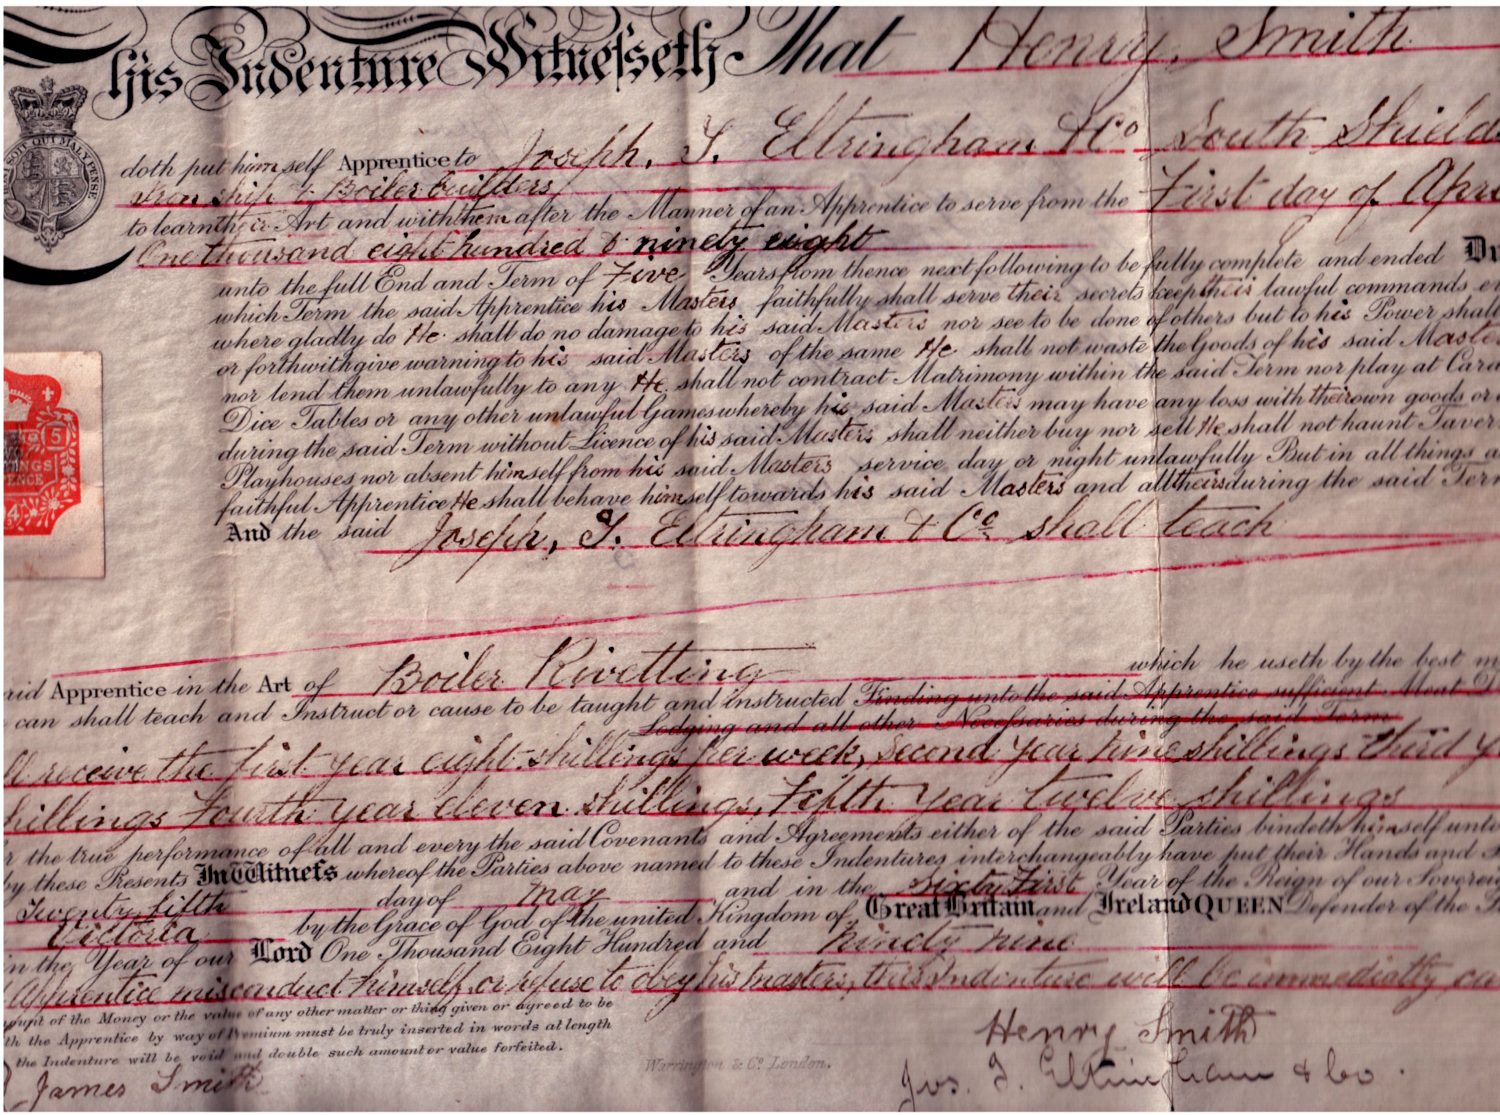 This Indenture Witnesseth That Henry, Smith
doth put himself Apprentice to Joseph, T. Eltringham & Co South Shields
Iron ship & Boiler builders
to learn their Art and with them after the Manner of an Apprentice to serve from the First day of Apr
One thousand eight hundred & ninety eight
unto the full End and Term of Five Years from thence next following to be fully complete and ended
which Term the said Apprentice his Masters faithfully shall serve their secrets keep their lawful commands
where gladly do He shall do no damage to his said Masters nor see to be done of others but to his Power shall
or forthwith give warning to his said Masters of the same He shall not waste the Goods of his said Masters
nor lend them unlawfully to any He shall not contract Matrimony within the said Term nor play at Cards
Dice Tables or any other unlawful Games whereby his said Masters may have any loss with their own goods or
during the said Term without Licence of his said Masters shall neither buy nor sell He shall not haunt Taver
Playhouses nor absent himself from his said Masters service day or night unlawfully But in all things a
faithful Apprentice He shall behave himself towards his said Masters and all theirs during the said Term
And the said Joseph, T. Eltringham & Co shall teach
aid Apprentice in the Art of Boiler Rivetting which he useth by the best m
can shall teach and Instruct or cause to be taught and instructed Finding unto the said Apprentice sufficient Meat D
Lodging and all other Necessaries during the said Term
ll receive the first year eight shillings per week, second year nine shillings third y
hillings Fourth year eleven shillings, Fifth year twelve shillings
r the true performance of all and every the said Covenants and Agreements either of the said Parties bindeth himself unto
by these Presents In Witness whereof the Parties above named to these Indentures interchangeably have put their Hands and
Twenty fifth day of May and in the Sixty First Year of the Reign of our Sovereig
Victoria by the Grace of God of the united Kingdom of Great Britain and Ireland QUEEN Defender of the
in the Year of our Lord One Thousand Eight Hundred and ninety nine
Apprentice misconduct himself, or refuse to obey his masters, this Indenture will be immediatly ca
ount of the Money or the value of any other matter or thing given or agreed to be
th the Apprentice by way of Premium must be truly inserted in words at length
the Indenture will be void and double such amount or value forfeited.
Warrington & Co London.
Henry Smith
James Smith
Jos. T. Eltringham & Co.
SOIT QUI MAL Y PENSE